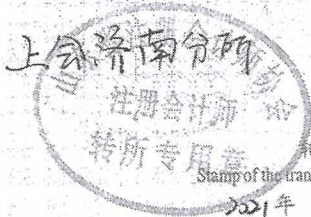 上会济南分所
注册会计师
转所专用章
Stamp of the tran
2021年